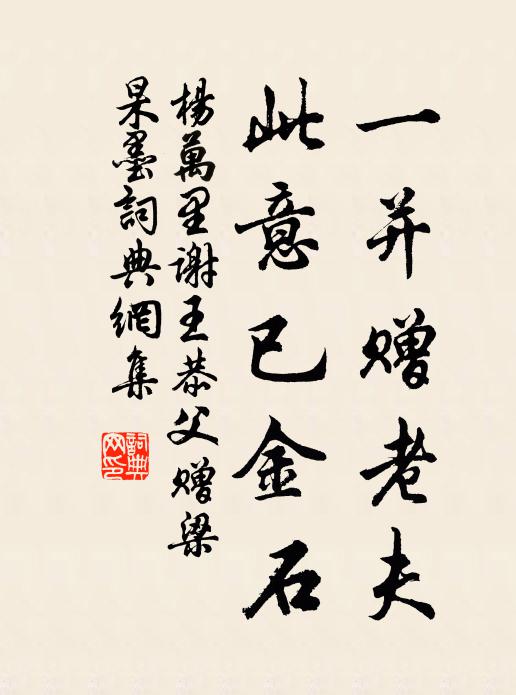 一并赠老夫
此意已金石
楊萬里谢王恭父赠梁
杲墨詞典網集
詞典
网印